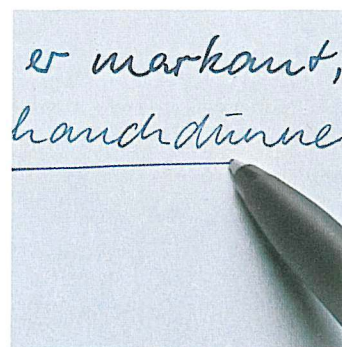 er markant,
hauchdünne